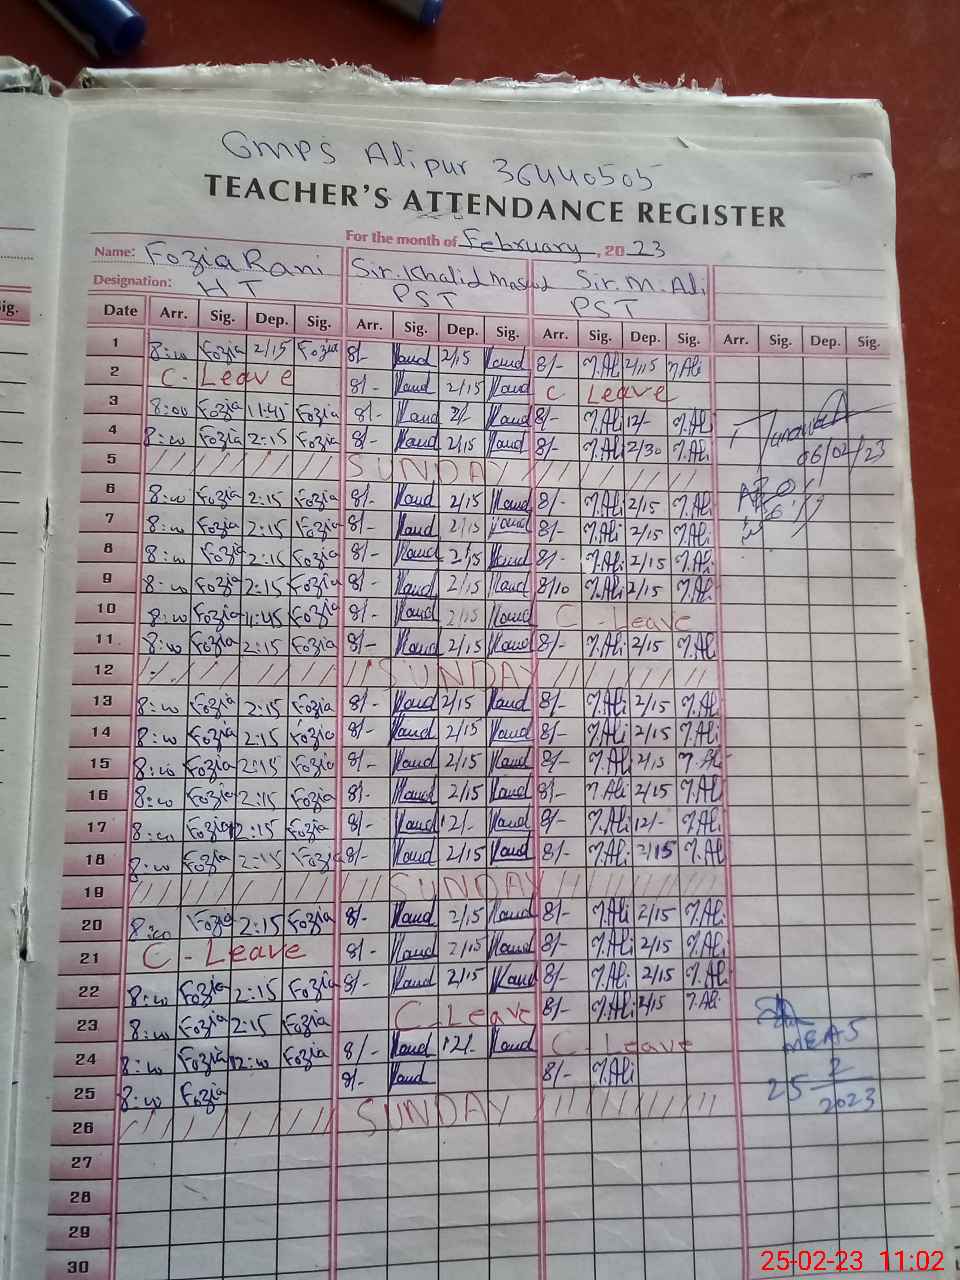 GMPS Alipur 36440505
TEACHER'S ATTENDANCE REGISTER
For the month of February, 2023
Name: Fozia Rani Sir. Khalid Masud Sir. M. Ali
Designation: HT PST PST
ig.
Date Arr. Sig. Dep. Sig. Arr. Sig. Dep. Sig. Arr. Sig. Dep. Sig. Arr. Sig. Dep. Sig.
1 8:00 Fozia 2/15 Fozia 8/- 2/15 8/- M.Ali 2/15 M.Ali
2 C - Leave 8/- 2/15 C Leave
3 8:00 Fozia 11:45 Fozia 8/- 8/- M.Ali 12/- M.Ali
4 8:00 Fozia 2:15 Fozia 8/- 2/15 8/- M.Ali 2/30 M.Ali
06/02/23
5 SUNDAY
6 8:00 Fozia 2:15 Fozia 8/- 2/15 8/- M.Ali 2/15 M.Ali
7 8:00 Fozia 2:15 Fozia 8/- 2/15 8/- M.Ali 2/15 M.Ali
8 8:00 Fozia 2:15 Fozia 8/- 2/15 8/- M.Ali 2/15 M.Ali
9 8:00 Fozia 2:15 Fozia 8/- 2/15 8/10 M.Ali 2/15 M.Ali
10 8:00 Fozia 11:45 Fozia 8/- 2/15 C - Leave
11 8:00 Fozia 2:15 Fozia 8/- 2/15 8/- M.Ali 2/15 M.Ali
12 SUNDAY
13 8:00 Fozia 2:15 Fozia 8/- 2/15 8/- M.Ali 2/15 M.Ali
14 8:00 Fozia 2:15 Fozia 8/- 2/15 8/- M.Ali 2/15 M.Ali
15 8:00 Fozia 2:15 Fozia 8/- 2/15 8/- M.Ali 2/15 M.Ali
16 8:00 Fozia 2:15 Fozia 8/- 2/15 8/- M.Ali 2/15 M.Ali
17 8:00 Fozia 12:15 Fozia 8/- 12/- 8/- M.Ali 12/- M.Ali
18 8:00 Fozia 2:15 Fozia 8/- 2/15 8/- M.Ali 2/15 M.Ali
19 SUNDAY
20 8:00 Fozia 2:15 Fozia 8/- 2/15 8/- M.Ali 2/15 M.Ali
21 C - Leave 8/- 2/15 8/- M.Ali 2/15 M.Ali
22 8:00 Fozia 2:15 Fozia 8/- 2/15 8/- M.Ali 2/15 M.Ali
23 8:00 Fozia 2:15 Fozia C - Leave 8/- M.Ali 2/15 M.Ali
24 8:00 Fozia 12:00 Fozia 8/- 12/- C - Leave
MEAS
25 8:00 Fozia 8/- 8/- M.Ali
25 2 2023
26 SUNDAY
27
28
29
30
25-02-23 11:02